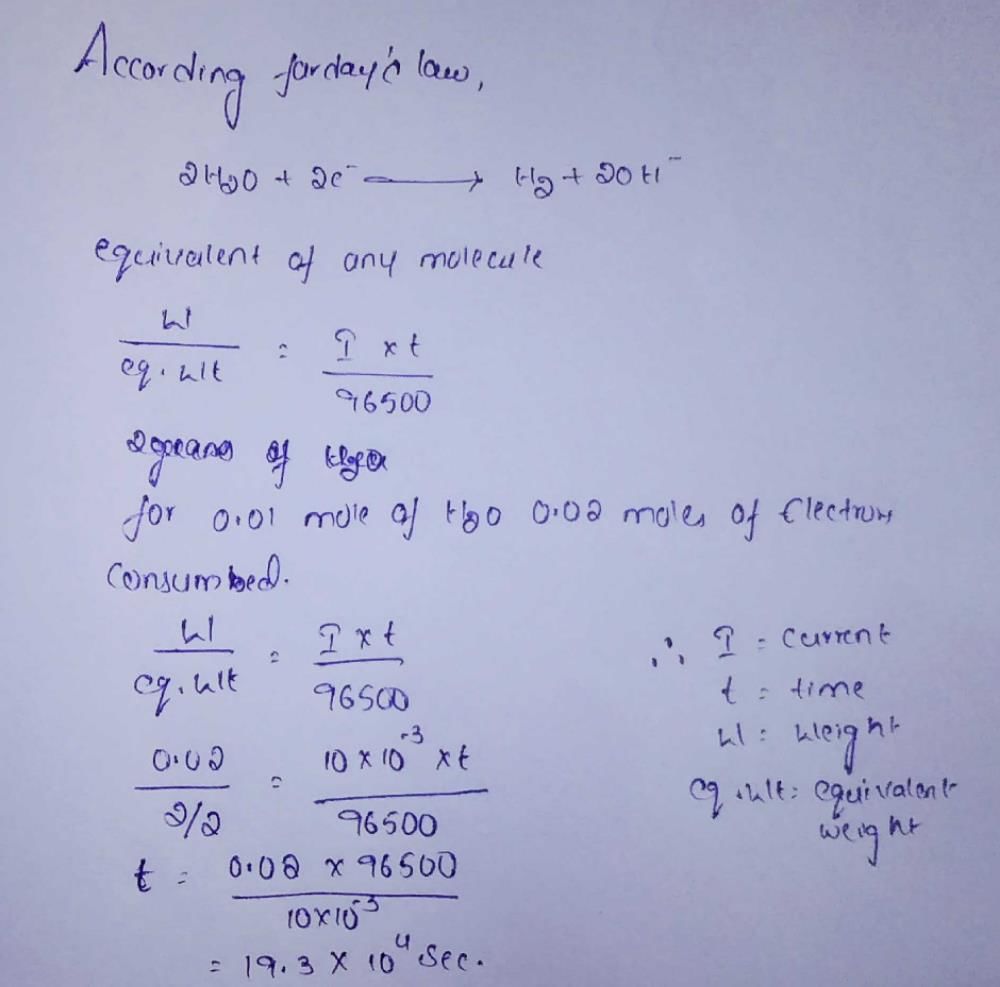 According farday's law,
2H2O + 2e⁻ ⟶ H2 + 2OH⁻
equivalent of any molecule
W / eq. wt = I x t / 96500
2 grams of
for 0.01 mole of H2O 0.02 moles of Electrons
Consumbed.
W / eq. wt = I x t / 96500
∴ I = Current
t = time
W = Weight
eq. wt = equivalent
weight
0.02 / 2/2 = 10 x 10⁻³ x t / 96500
t = 0.02 x 96500 / 10x10⁻³
= 19.3 x 10⁴ Sec.